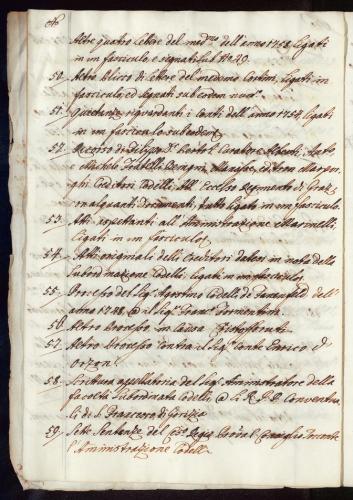 Altre quatro Lettere del med.mo dell'anno 1758 ligati
in un fascicolo, e segnati sub N.o 49.
50. Altro plico di Lettere del medemo Contini, ligati in
fascicolo, ed segnati sub eodem num.o
51. Quietanze riguardanti i Conti dell'anno 1754 ligati
in un fascicolo sub eodem
52. Ricorso di
e Fratelli
Creditori Codelli, All' Eccelso Regimento di Graz
con alquanti Documenti, tutto ligati in un fascicolo
53. Atti spettanti all' Aministrazione Marinelli,
ligati in un fascicolo
54. Atti originali delli Creditori dattisi in nota della
Subordinazione Codelli, ligati in un fascicolo
55. Processo del Sig.r Agostino Codelli de Fanenfeld dell'
anno 1748 @ il Sig.r Franc.o Formentini
56. Altro Processo in causa
57. Altro Processo contra il Sig.r Conte Enrico d'
Orzon
58. Scrittura apellatoria del Sig.r Aministratore della
facoltà Subordinata Codelli, @ li R. P. P. Conventua
li di S. Francesco di Gorizia
59. Sette Sentenze del Ces.o Regio Consiglio
l'Aministrazione Codelli